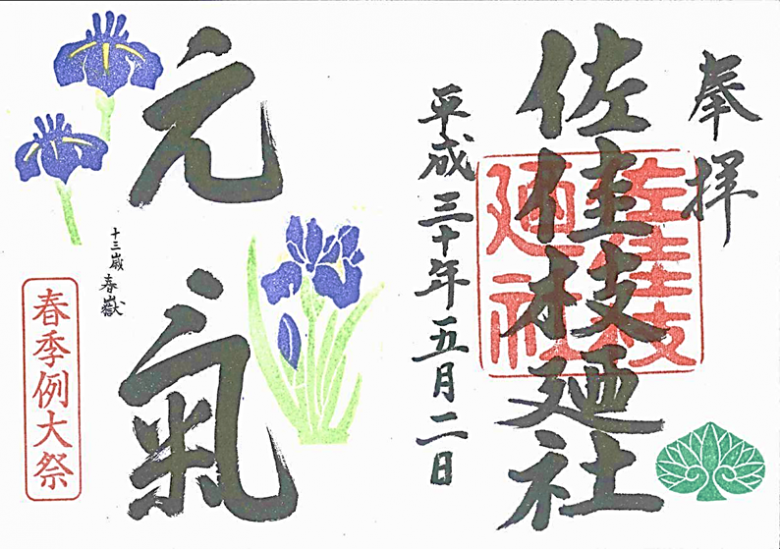 奉拝
佐佳枝廼社
佐佳枝
廼社
平成三十年五月二日
元氣
十三歳 春嶽
春季例大祭